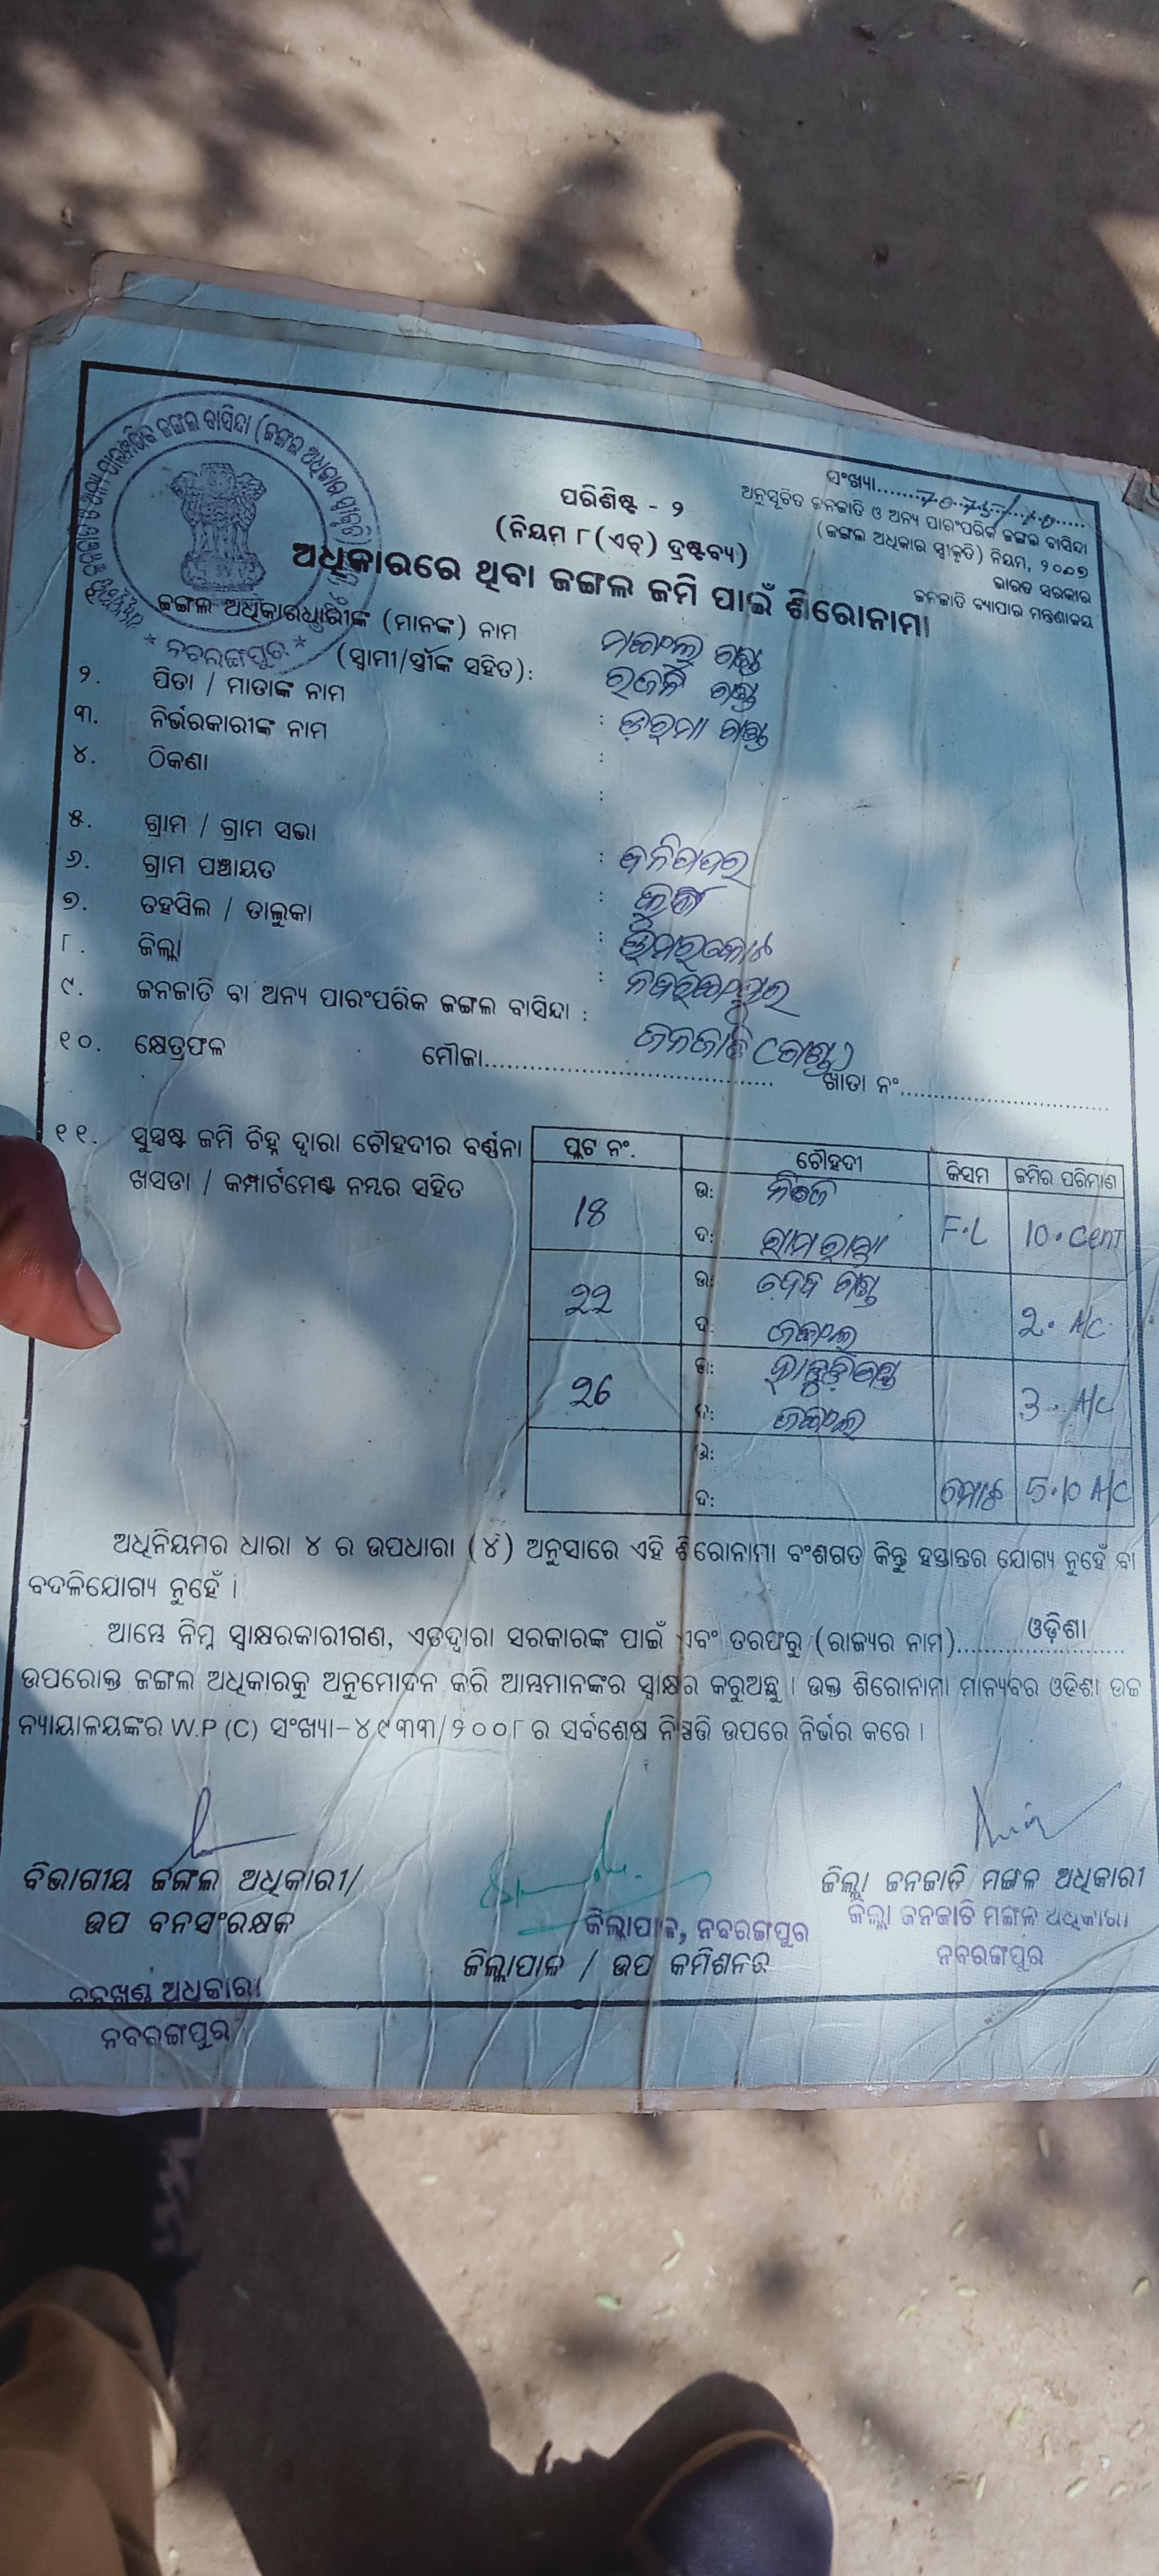 ସଂଖ୍ୟା
ଅନୁସୂଚିତ ଜନଜାତି ଓ ଅନ୍ୟ ପାରଂପରିକ ଜଙ୍ଗଲ ବାସିନ୍ଦା
(ଜଙ୍ଗଲ ଅଧିକାର ସ୍ୱୀକୃତି) ନିୟମ, ୨୦୦୭
ଭାରତ ସରକାର
ଜନଜାତି ବ୍ୟାପାର ମନ୍ତ୍ରଣାଳୟ
ପରିଶିଷ୍ଟ - ୨
(ନିୟମ ୮(ଏଚ୍) ଦ୍ରଷ୍ଟବ୍ୟ)
ଅଧିକାରରେ ଥିବା ଜଙ୍ଗଲ ଜମି ପାଇଁ ଶିରୋନାମା
* ନବରଙ୍ଗପୁର *
ଜଙ୍ଗଲ ଅଧିକାରଧାରୀଙ୍କ (ମାନଙ୍କ) ନାମ
(ସ୍ୱାମୀ/ସ୍ତ୍ରୀଙ୍କ ସହିତ):
୨. ପିତା / ମାତାଙ୍କ ନାମ :
୩. ନିର୍ଭରକାରୀଙ୍କ ନାମ :
୪. ଠିକଣା :
୫. ଗ୍ରାମ / ଗ୍ରାମ ସଭା :
୬. ଗ୍ରାମ ପଞ୍ଚାୟତ :
୭. ତହସିଲ / ତାଲୁକା : ଉମରକୋଟ
୮. ଜିଲ୍ଲା : ନବରଙ୍ଗପୁର
୯. ଜନଜାତି ବା ଅନ୍ୟ ପାରଂପରିକ ଜଙ୍ଗଲ ବାସିନ୍ଦା : ଜନଜାତି (ଗଣ୍ଡ)
୧୦. କ୍ଷେତ୍ରଫଳ ମୌଜା.......... ଖାତା ନଂ..........
୧୧. ସୁସ୍ପଷ୍ଟ ଜମି ଚିହ୍ନ ଦ୍ୱାରା ଚୌହଦୀର ବର୍ଣ୍ଣନା
ଖସଡା / କମ୍ପାର୍ଟମେଣ୍ଟ ନମ୍ବର ସହିତ
ପ୍ଲଟ ନଂ. ଚୌହଦୀ କିସମ ଜମିର ପରିମାଣ
18 ଉ: ନିଜେ F.L 10.cent
ଦ:
22 ଉ: ଦେବ ଗଣ୍ଡ 2. A/C.
ଦ: ଜଙ୍ଗଲ
26 ଉ: 3. A/C
ଦ: ଜଙ୍ଗଲ
ଉ:
ଦ: ମୋଟ 5.10 A/C
ଅଧିନିୟମର ଧାରା ୪ ର ଉପଧାରା (୪) ଅନୁସାରେ ଏହି ଶିରୋନାମା ବଂଶଗତ କିନ୍ତୁ ହସ୍ତାନ୍ତର ଯୋଗ୍ୟ ନୁହେଁ ବା
ବଦଳିଯୋଗ୍ୟ ନୁହେଁ ।
ଆମ୍ଭେ ନିମ୍ନ ସ୍ୱାକ୍ଷରକାରୀଗଣ, ଏତଦ୍ୱାରା ସରକାରଙ୍କ ପାଇଁ ଏବଂ ତରଫରୁ (ରାଜ୍ୟର ନାମ)..........ଓଡ଼ିଶା
ଉପରୋକ୍ତ ଜଙ୍ଗଲ ଅଧିକାରକୁ ଅନୁମୋଦନ କରି ଆମ୍ଭମାନଙ୍କର ସ୍ୱାକ୍ଷର କରୁଅଛୁ । ଉକ୍ତ ଶିରୋନାମା ମାନ୍ୟବର ଓଡିଶା ଉଚ୍ଚ
ନ୍ୟାୟାଳୟଙ୍କର W.P (C) ସଂଖ୍ୟା-୪୯୩୩/୨୦୦୮ ର ସର୍ବଶେଷ ନିଷ୍ପତ୍ତି ଉପରେ ନିର୍ଭର କରେ ।
ବିଭାଗୀୟ ଜଙ୍ଗଲ ଅଧିକାରୀ/
ଉପ ବନସଂରକ୍ଷକ
ବନଖଣ୍ଡ ଅଧିକାରୀ
ନବରଙ୍ଗପୁର
ଜିଲ୍ଲାପାଳ, ନବରଙ୍ଗପୁର
ଜିଲ୍ଲାପାଳ / ଉପ କମିଶନର
ଜିଲ୍ଲା ଜନଜାତି ମଙ୍ଗଳ ଅଧିକାରୀ
ଜିଲ୍ଲା ଜନଜାତି ମଙ୍ଗଳ ଅଧିକାରୀ
ନବରଙ୍ଗପୁର